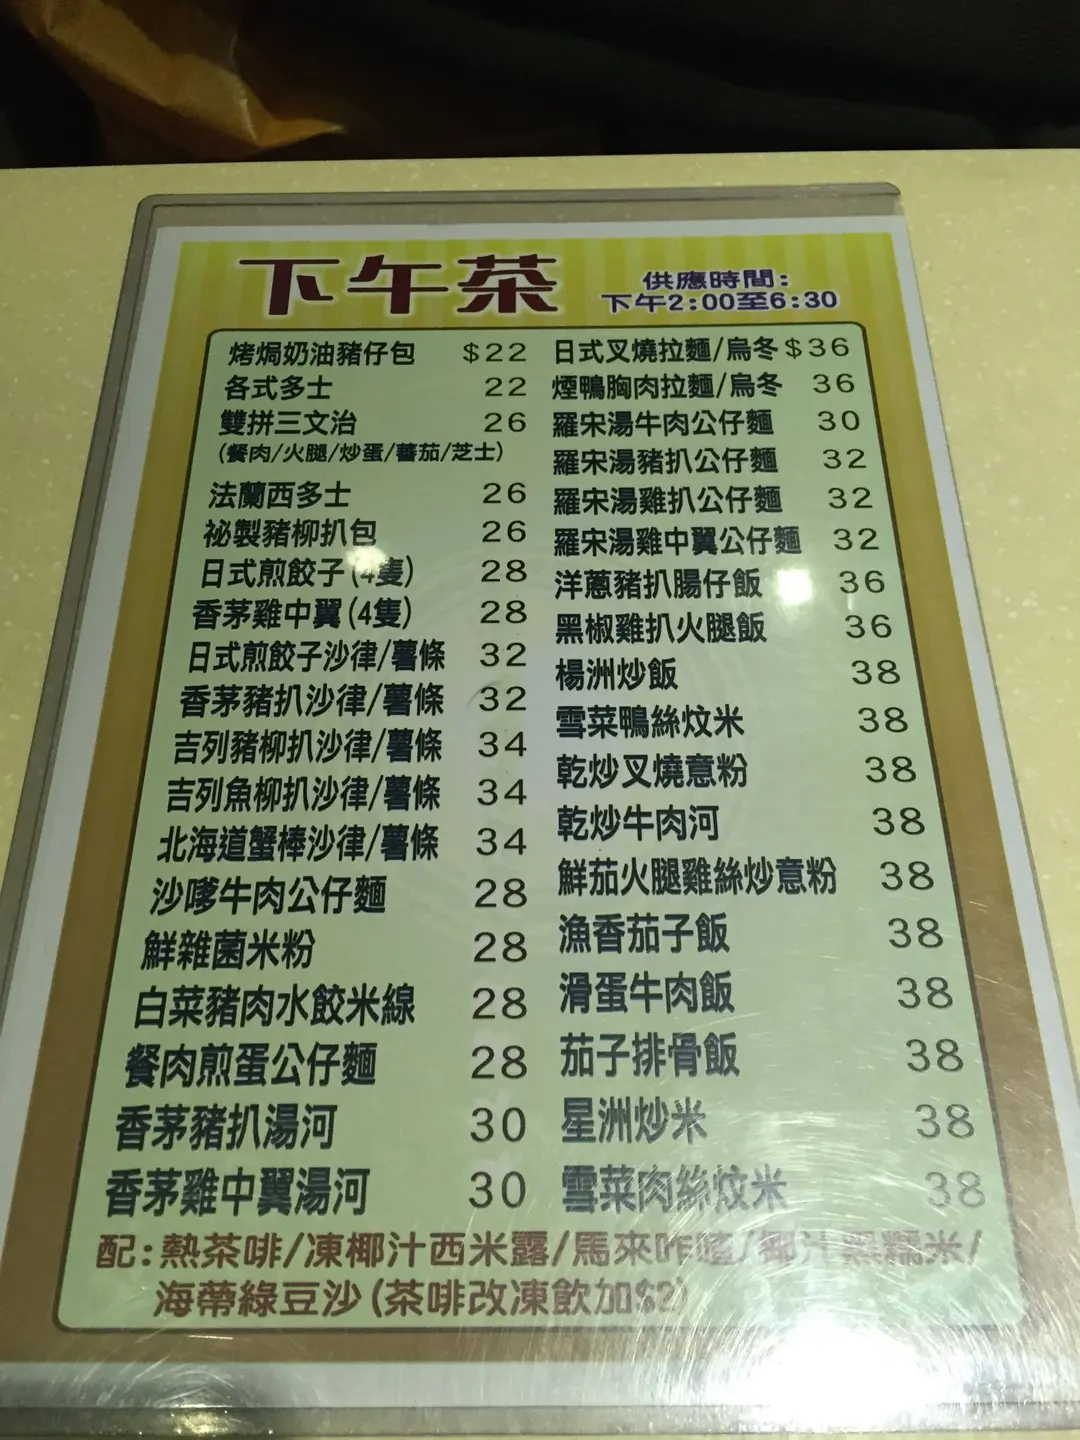 下午茶
供應時間:
下午2:00至6:30
烤焗奶油豬仔包 $22
各式多士 22
雙拼三文治 26
(餐肉/火腿/炒蛋/蕃茄/芝士)
法蘭西多士 26
祕製豬柳扒包 26
日式煎餃子(4隻) 28
香茅雞中翼(4隻) 28
日式煎餃子沙律/薯條 32
香茅豬扒沙律/薯條 32
吉列豬柳扒沙律/薯條 34
吉列魚柳扒沙律/薯條 34
北海道蟹棒沙律/薯條 34
沙嗲牛肉公仔麵 28
鮮雜菌米粉 28
白菜豬肉水餃米線 28
餐肉煎蛋公仔麵 28
香茅豬扒湯河 30
香茅雞中翼湯河 30
日式叉燒拉麵/烏冬 $36
煙鴨胸肉拉麵/烏冬 36
羅宋湯牛肉公仔麵 30
羅宋湯豬扒公仔麵 32
羅宋湯雞扒公仔麵 32
羅宋湯雞中翼公仔麵 32
洋蔥豬扒腸仔飯 36
黑椒雞扒火腿飯 36
楊洲炒飯 38
雪菜鴨絲炆米 38
乾炒叉燒意粉 38
乾炒牛肉河 38
鮮茄火腿雞絲炒意粉 38
漁香茄子飯 38
滑蛋牛肉飯 38
茄子排骨飯 38
星洲炒米 38
雪菜肉絲炆米 38
配:熱茶啡/凍椰汁西米露/馬來咋喳/椰汁黑糯米/
海帶綠豆沙(茶啡改凍飲加$2)